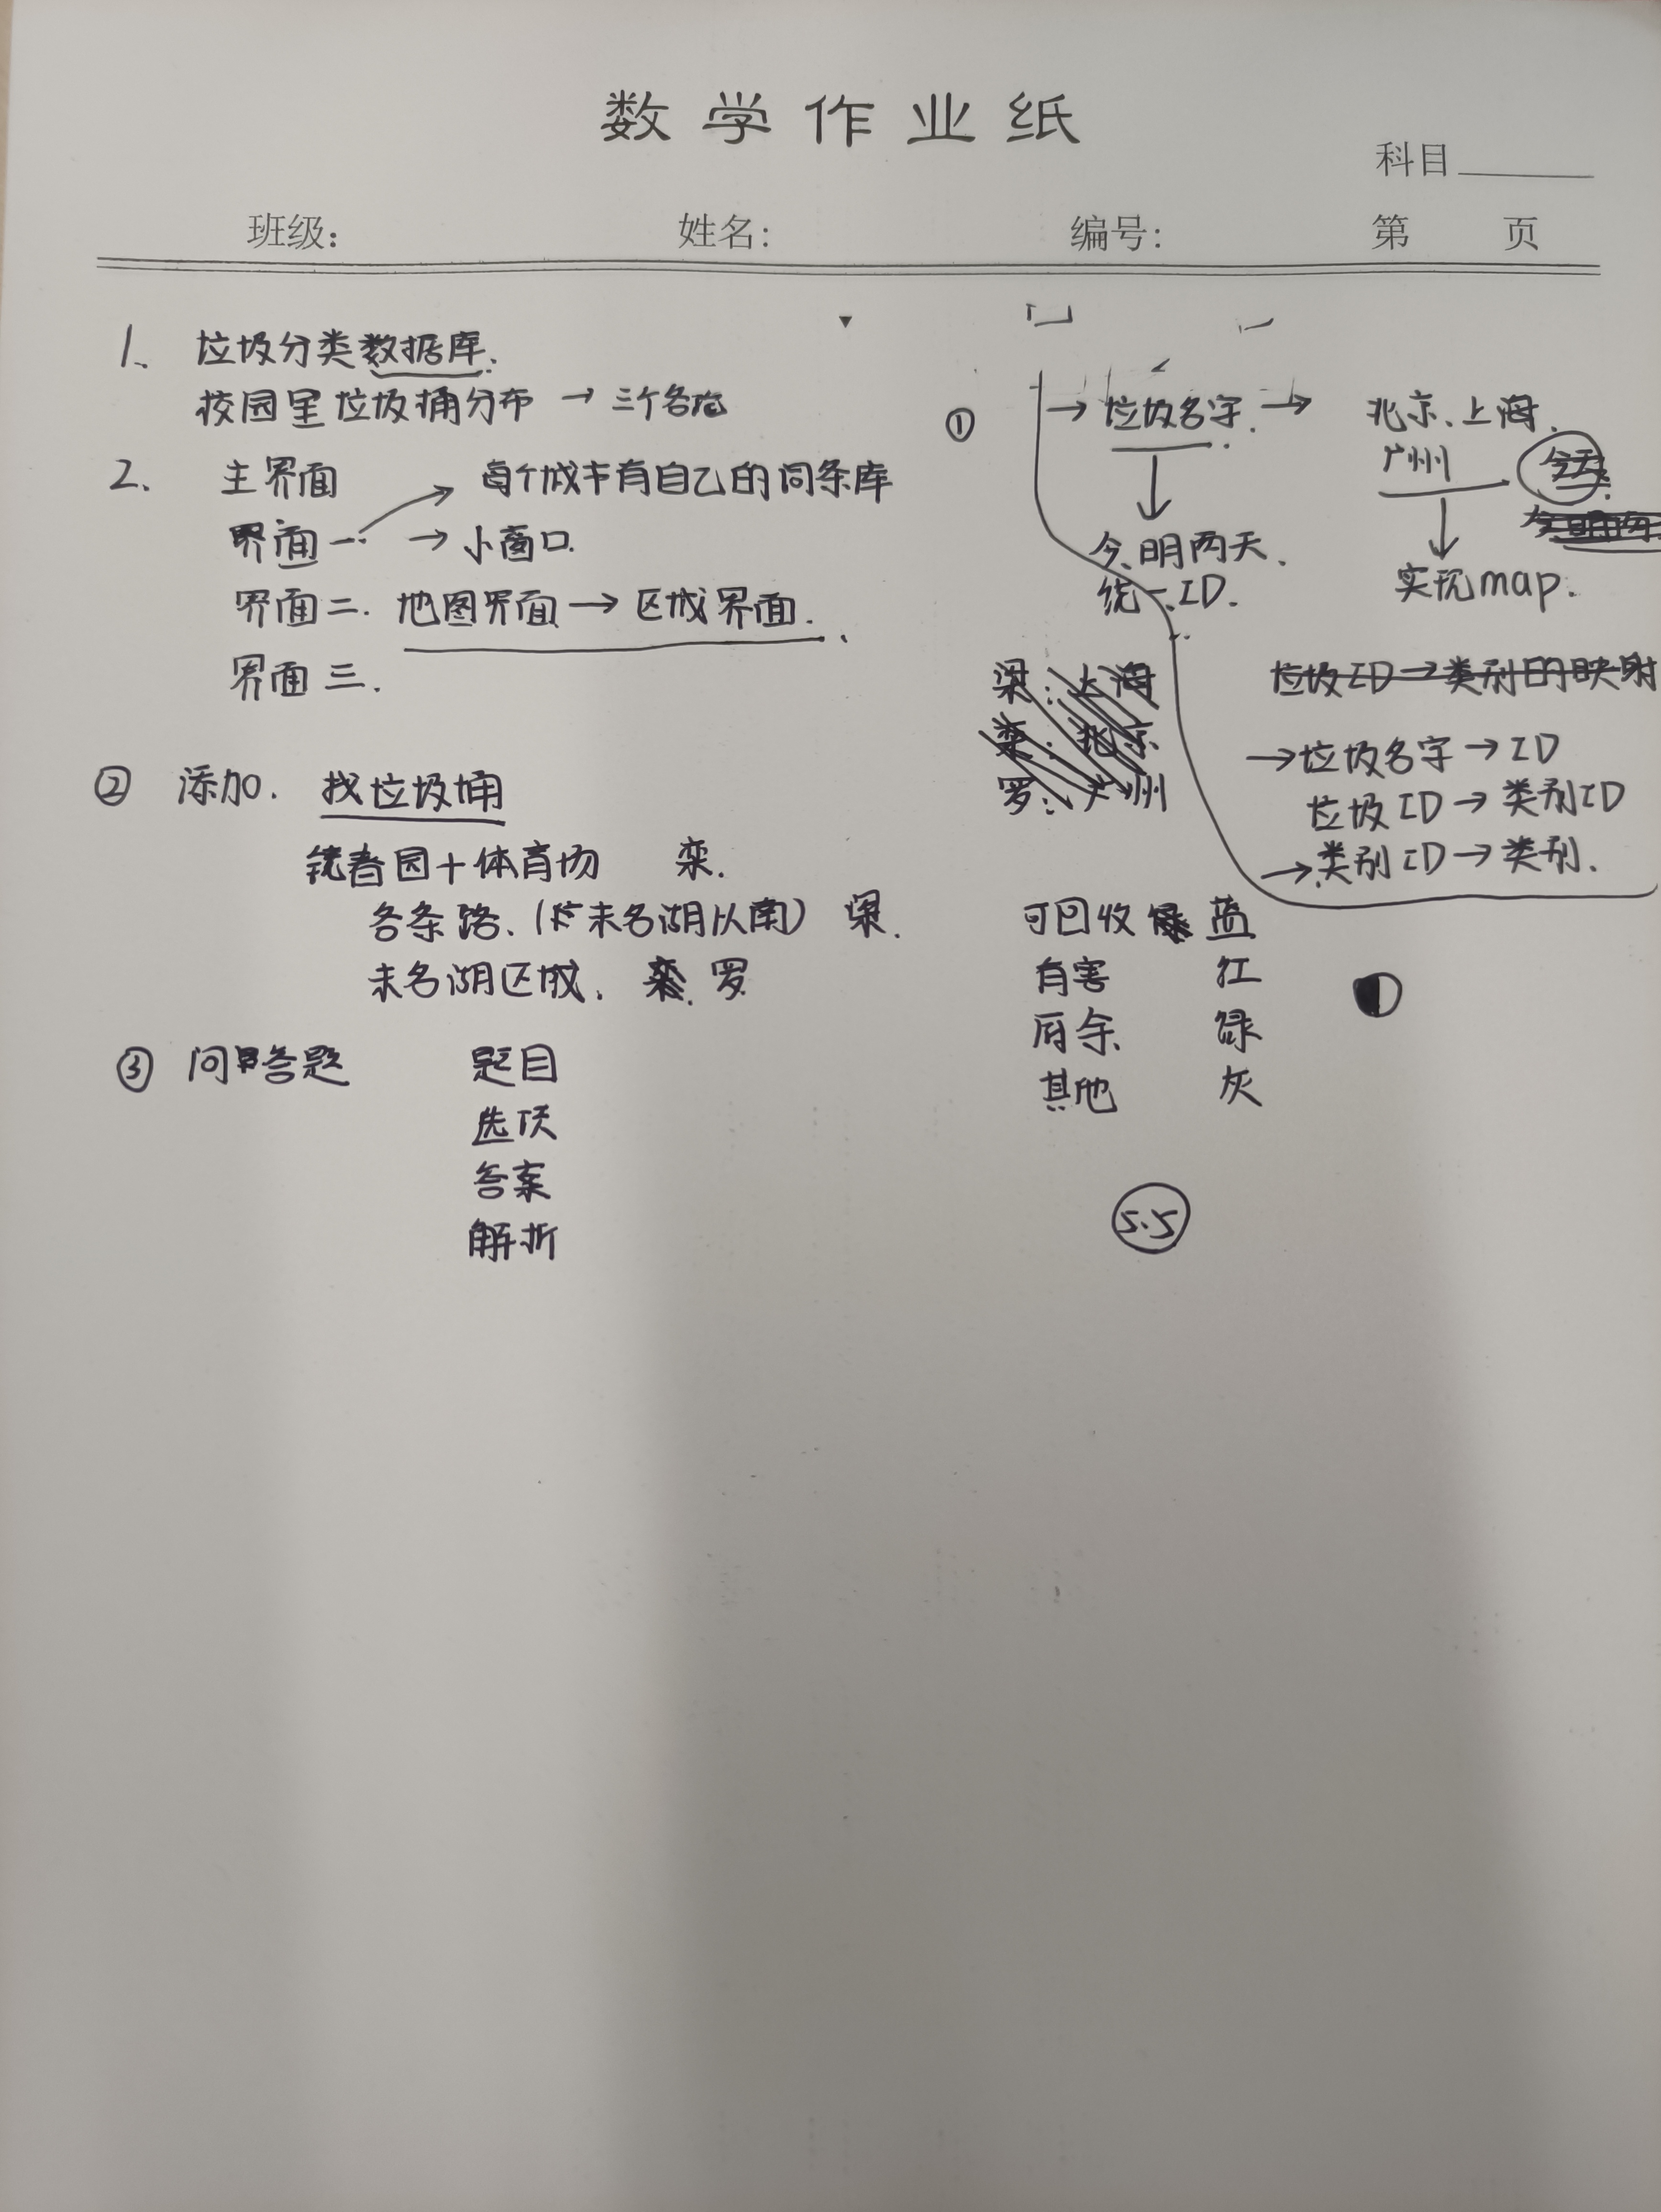 数学作业纸
科目
班级: 姓名: 编号: 第 页
1. 垃圾分类数据库.
校园里垃圾桶分布 → 三个各
2. 主界面
每个城市有自己的词条库
界面一 → 小窗口.
界面二. 地图界面 → 区域界面.
界面三.
② 添加. 找垃圾桶
镜春园+体育场 栾.
各条路.(除未名湖以南) 梁.
未名湖区域. 罗
③ 问答题 题目
选项
答案
解析
① → 垃圾名字. → 北京、上海.
广州
今明两天.
统一ID.
实现map.
梁: 上海
栾: 北京
罗: 广州
垃圾ID→类别的映射
→垃圾名字→ID
垃圾ID→类别ID
→类别ID→类别.
可回收 蓝
有害 红
厨余 绿
其他 灰
5.5